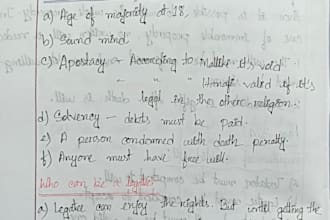 a) Age of majority at 18,
b) Sound mind.
c) Apostacy - According to it's void.
" " valid if it's
legal in the other religion.
d) Solvency - debts must be paid.
e) A person condemned with death penalty.
f) Anyone must have free will.
Who can be a legatee
a) Legatee can enjoy the rights. But until getting the